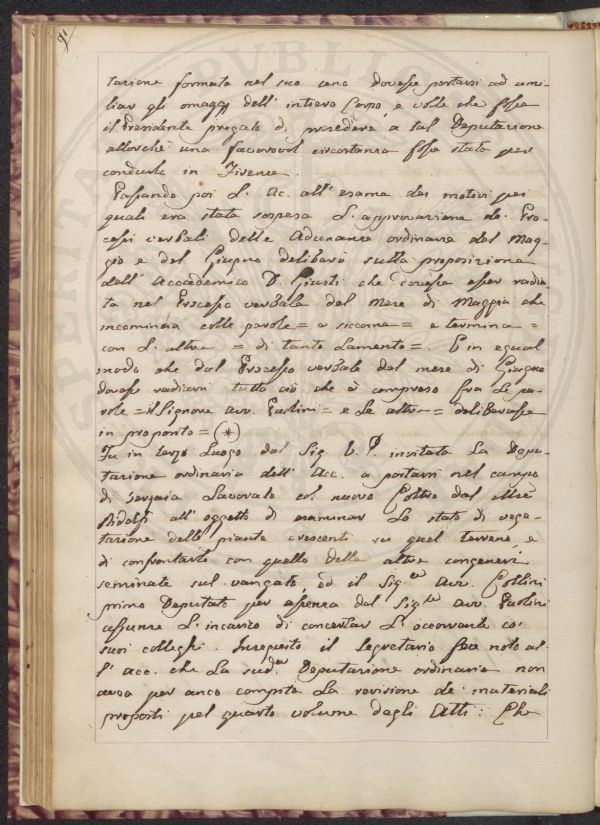 tazione formata nel suo seno dovesse portarsi ad umi-
liar gli omaggj dell' intiero Corpo, e volle che fosse
il Presidente pregato di presedere a tal Deputazione
allorchè una favorevol circostanza fosse stata per
condurlo in Firenze.
Passando poi L' Ac. all' esame dei motivi pei
quali era stata sospesa L' approvazione de' Pro-
cessi verbali delle Adunanze ordinarie del Mag-
gio e del Giugno deliberò sulla proposizione
dell' Accademico D. Giusti che dovesse esser radia-
ta nel Processo verbale del Mese di Maggio che
incomincia colle parole = e siccome = e termina =
con L' altre = di tanto Lamento =. E in egual
modo che dal Processo verbale del mese di Giugno
dovesse radiarsi tutto ciò che è compreso fra Le pa-
role = il Signore Avv. Paolini = e Le altre = deliberasse
in proposito = (*)
Fu in terzo Luogo dal Sig. V. P. invitata La Depu-
tazione ordinaria dell' Acc. a portarsi nel campo
di Lavorato col nuovo Coltro dal
Ridolfi all' oggetto di esaminar Lo stato di vege-
tazione delle piante crescenti su quel terreno, e
di confrontarlo con quello delle altre congeneri
seminate sul vangato, ed il Sig.re Avv. Collini
primo Deputato per assenza del Sig.re Avv. Paolini
assunse L' incarico di concertar L' occorrente co'
suoi colleghi. In seguito il Segretario fece noto al-
l' Acc. che La sud.a Deputazione ordinaria non
avea per anco compito La revisione de' materiali
proposti pel quarto volume degli Atti: Che